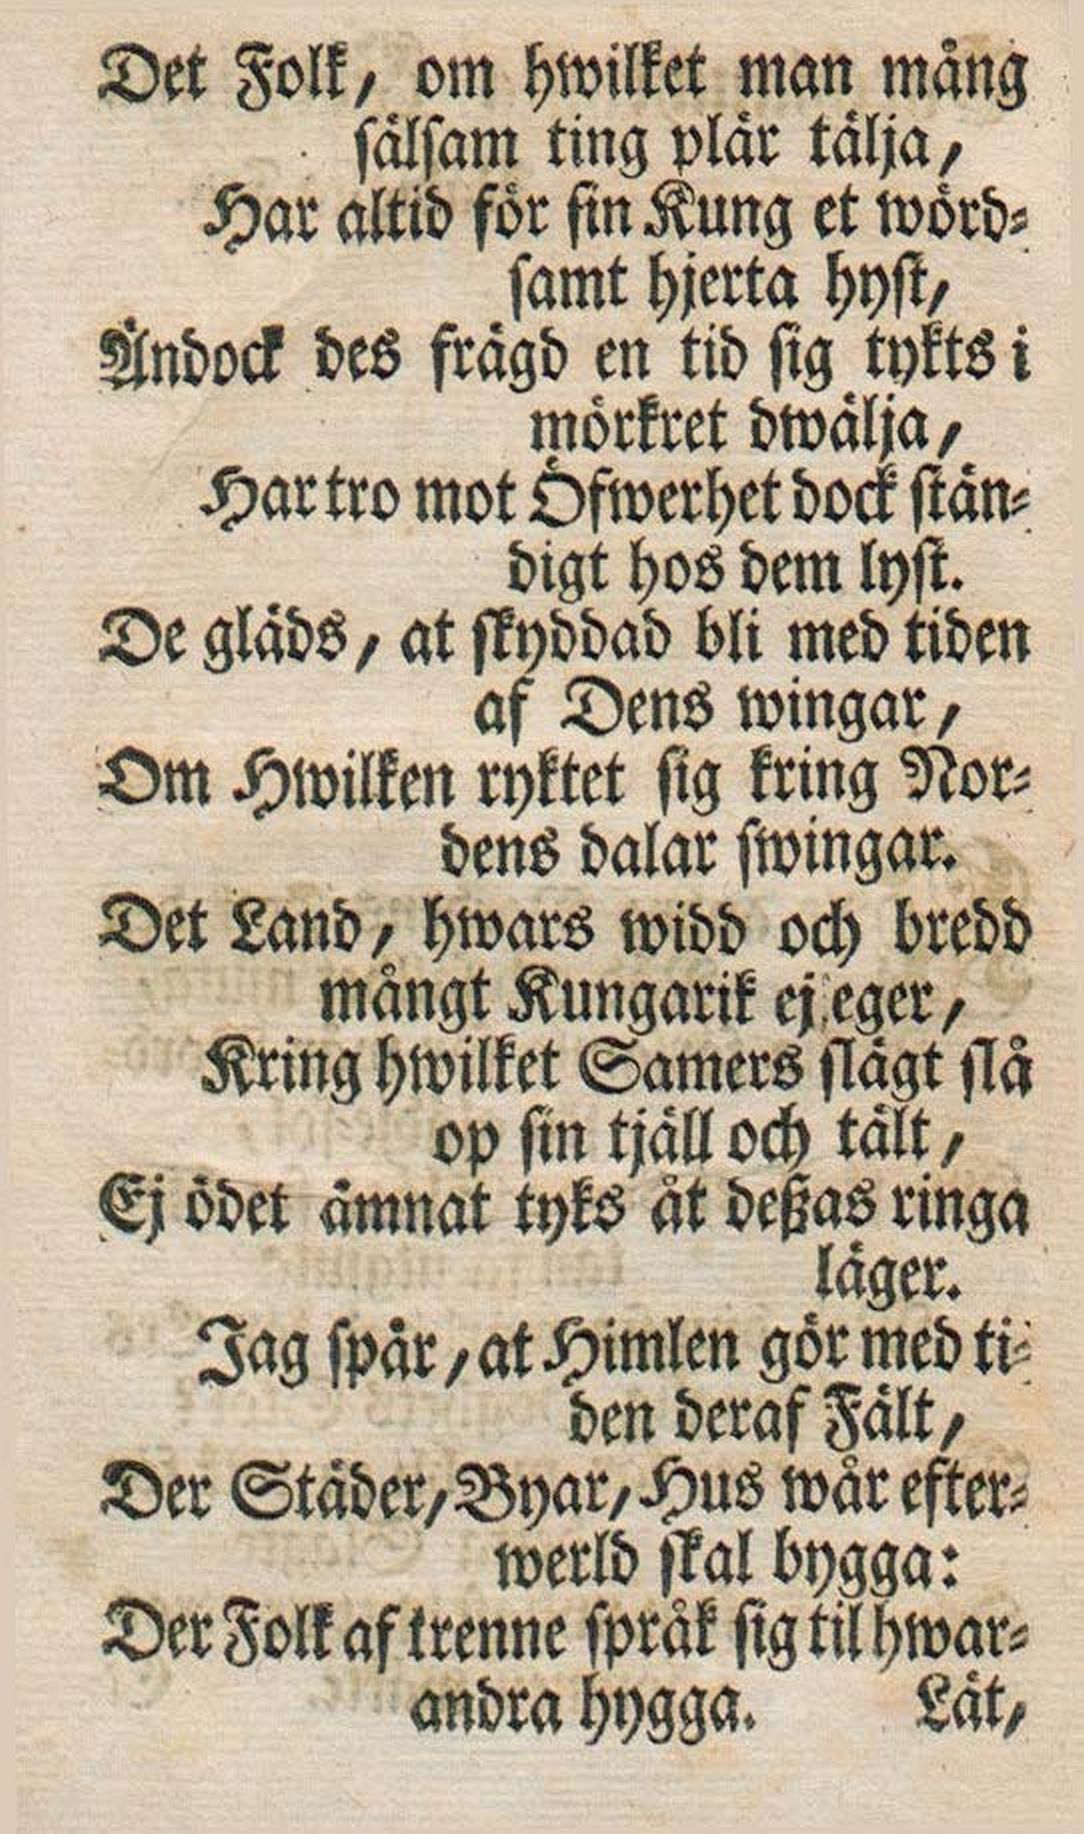 Det Folk, om hwilket man mång
sälsam ting plär tälja,
Har altid för sin Kung et wörd-
samt hjerta hyst,
Ändock des frägd en tid sig tykts i
mörkret dwälja,
Har tro mot Öfwerhet dock stän-
digt hos dem lyst.
De gläds, at skyddad bli med tiden
af Dens wingar,
Om Hwilken ryktet sig kring Nor-
dens dalar swingar.
Det Land, hwars widd och bredd
mångt Kungarik ej eger,
Kring hwilket Samers slägt slå
op sin tjäll och tält,
Ej ödet ämnat tyks åt deßas ringa
läger.
Jag spår, at Himlen gör med ti-
den deraf Fält,
Der Städer, Byar, Hus wår efter-
werld skal bygga:
Der Folk af trenne språk sig til hwar-
andra hygga. Låt,